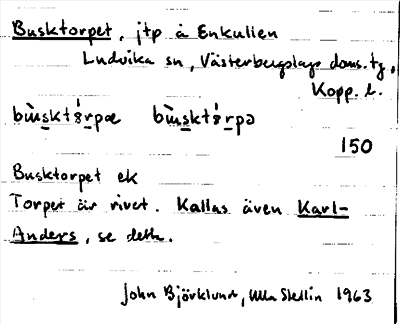 Busktorpet, jtp å Enkulien
Ludvika sn, Västerbergslags doms.tg,
Kopp. l.
150
Busktorpet ek
Torpet är rivet. Kallas även Karl-
Anders, se detta.
John Björklund, Ulla Stedlin 1963